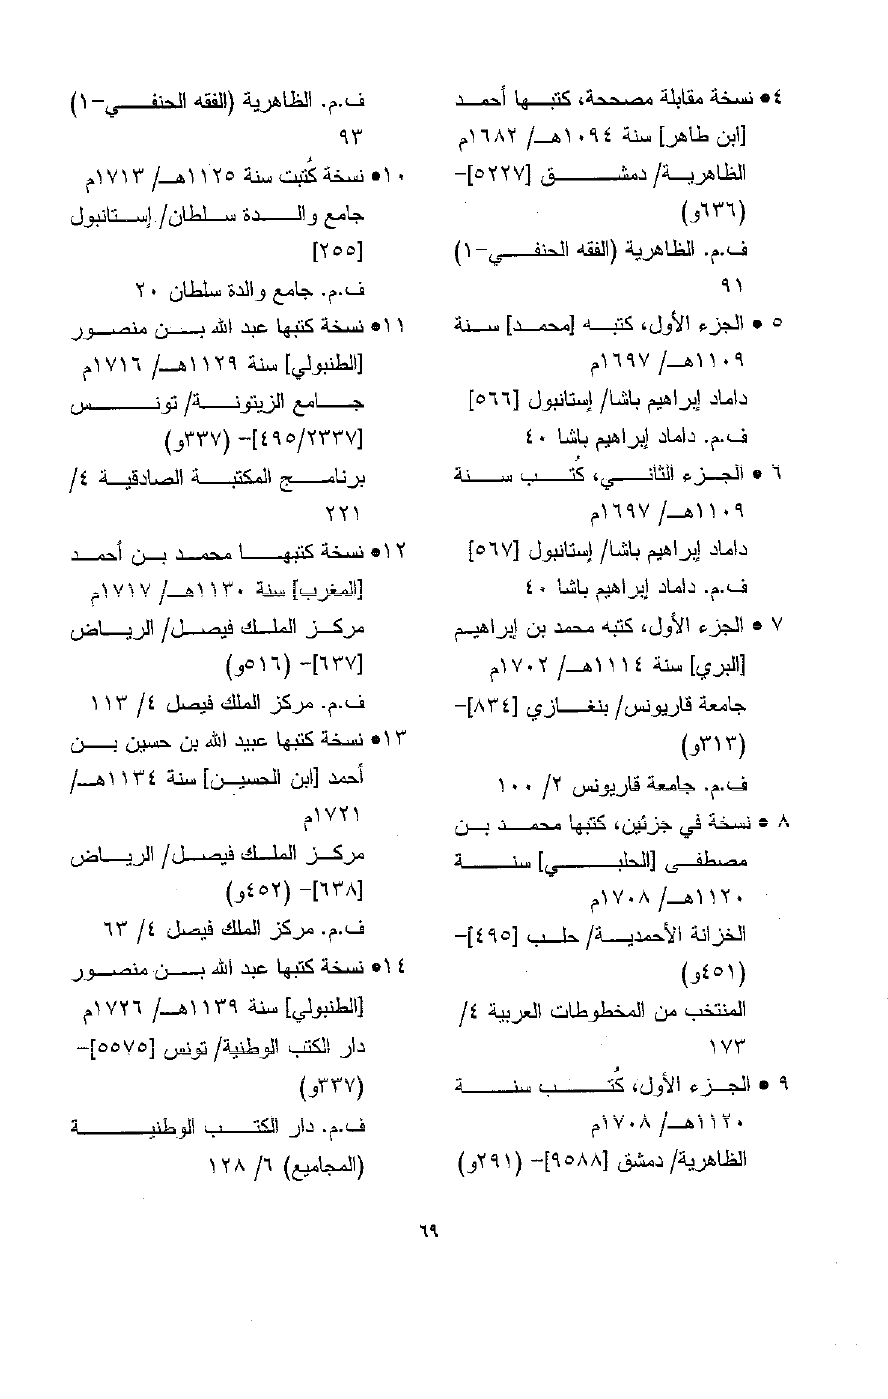 ٤• نسخة مقابلة مصححة، كتبها أحمد
[ابن طاهر] سنة ١٠٩٤هـ/ ١٦٨٢م
الظاهرية/ دمشق [٥٢٢٧]-
(٦٣٦و)
ف.م. الظاهرية (الفقه الحنفي-١)
٩١
٥ • الجزء الأول، كتبه [محمد] سنة
١١٠٩هـ/ ١٦٩٧م
داماد إبراهيم باشا/ إستانبول [٥٦٦]
ف.م. داماد إبراهيم باشا ٤٠
٦ • الجزء الثاني، كُتب سنة
١١٠٩هـ/ ١٦٩٧م
داماد إبراهيم باشا/ إستانبول [٥٦٧]
ف.م. داماد إبراهيم باشا ٤٠
٧ • الجزء الأول، كتبه محمد بن إبراهيم
[البري] سنة ١١١٤هـ/ ١٧٠٢م
جامعة قاريونس/ بنغازي [٨٣٤]-
(٣١٣و)
ف.م. جامعة قاريونس ٢/ ١٠٠
٨ • نسخة في جزئين، كتبها محمد بن
مصطفى [الحلبي] سنة
١١٢٠هـ/ ١٧٠٨م
الخزانة الأحمدية/ حلب [٤٩٥]-
(٤٥١و)
المنتخب من المخطوطات العربية ٤/
١٧٣
٩ • الجزء الأول، كُتب سنة
١١٢٠هـ/ ١٧٠٨م
الظاهرية/ دمشق [٩٥٨٨]- (٢٩١و)
ف.م. الظاهرية (الفقه الحنفي-١)
٩٣
١٠• نسخة كُتبت سنة ١١٢٥هـ/ ١٧١٣م
جامع والدة سلطان/ إستانبول
[٢٥٥]
ف.م. جامع والدة سلطان ٢٠
١١• نسخة كتبها عبد الله بن منصور
[الطنبولي] سنة ١١٢٩هـ/ ١٧١٦م
جامع الزيتونة/ تونس
[٤٩٥/٢٣٣٧]- (٣٣٧و)
برنامج المكتبة الصادقية ٤/
٢٢١
١٢• نسخة كتبها محمد بن أحمد
[المغرب] سنة ١١٣٠هـ/ ١٧١٧م
مركز الملك فيصل/ الرياض
[٦٣٧]- (٥١٦و)
ف.م. مركز الملك فيصل ٤/ ١١٣
١٣• نسخة كتبها عبيد الله بن حسين بن
أحمد [ابن الحسين] سنة ١١٣٤هـ/
١٧٢١م
مركز الملك فيصل/ الرياض
[٦٣٨]- (٤٥٢و)
ف.م. مركز الملك فيصل ٤/ ٦٣
١٤• نسخة كتبها عبد الله بن منصور
[الطنبولي] سنة ١١٣٩هـ/ ١٧٢٦م
دار الكتب الوطنية/ تونس [٥٥٧٥]-
(٣٣٧و)
ف.م. دار الكتب الوطنية
(المجاميع) ٦/ ١٢٨
٦٩